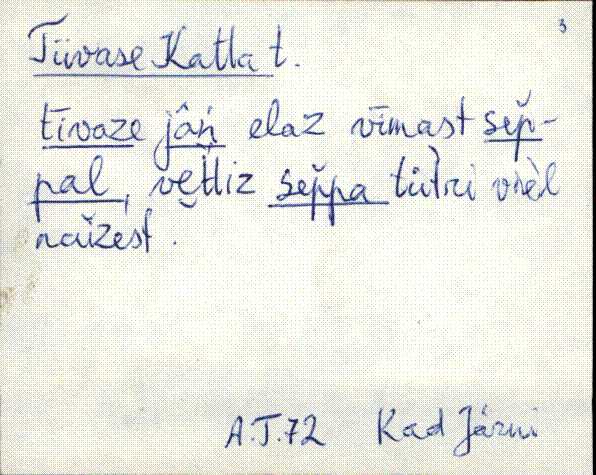 3
Tiivase Katla t.
tīvaze jâń elaz vīmast sĕp̆-
pal, vĕt̆liz sĕp̆pa tüt̀ri vŋèl
naĭzest.
A.T.72 Kad Järni